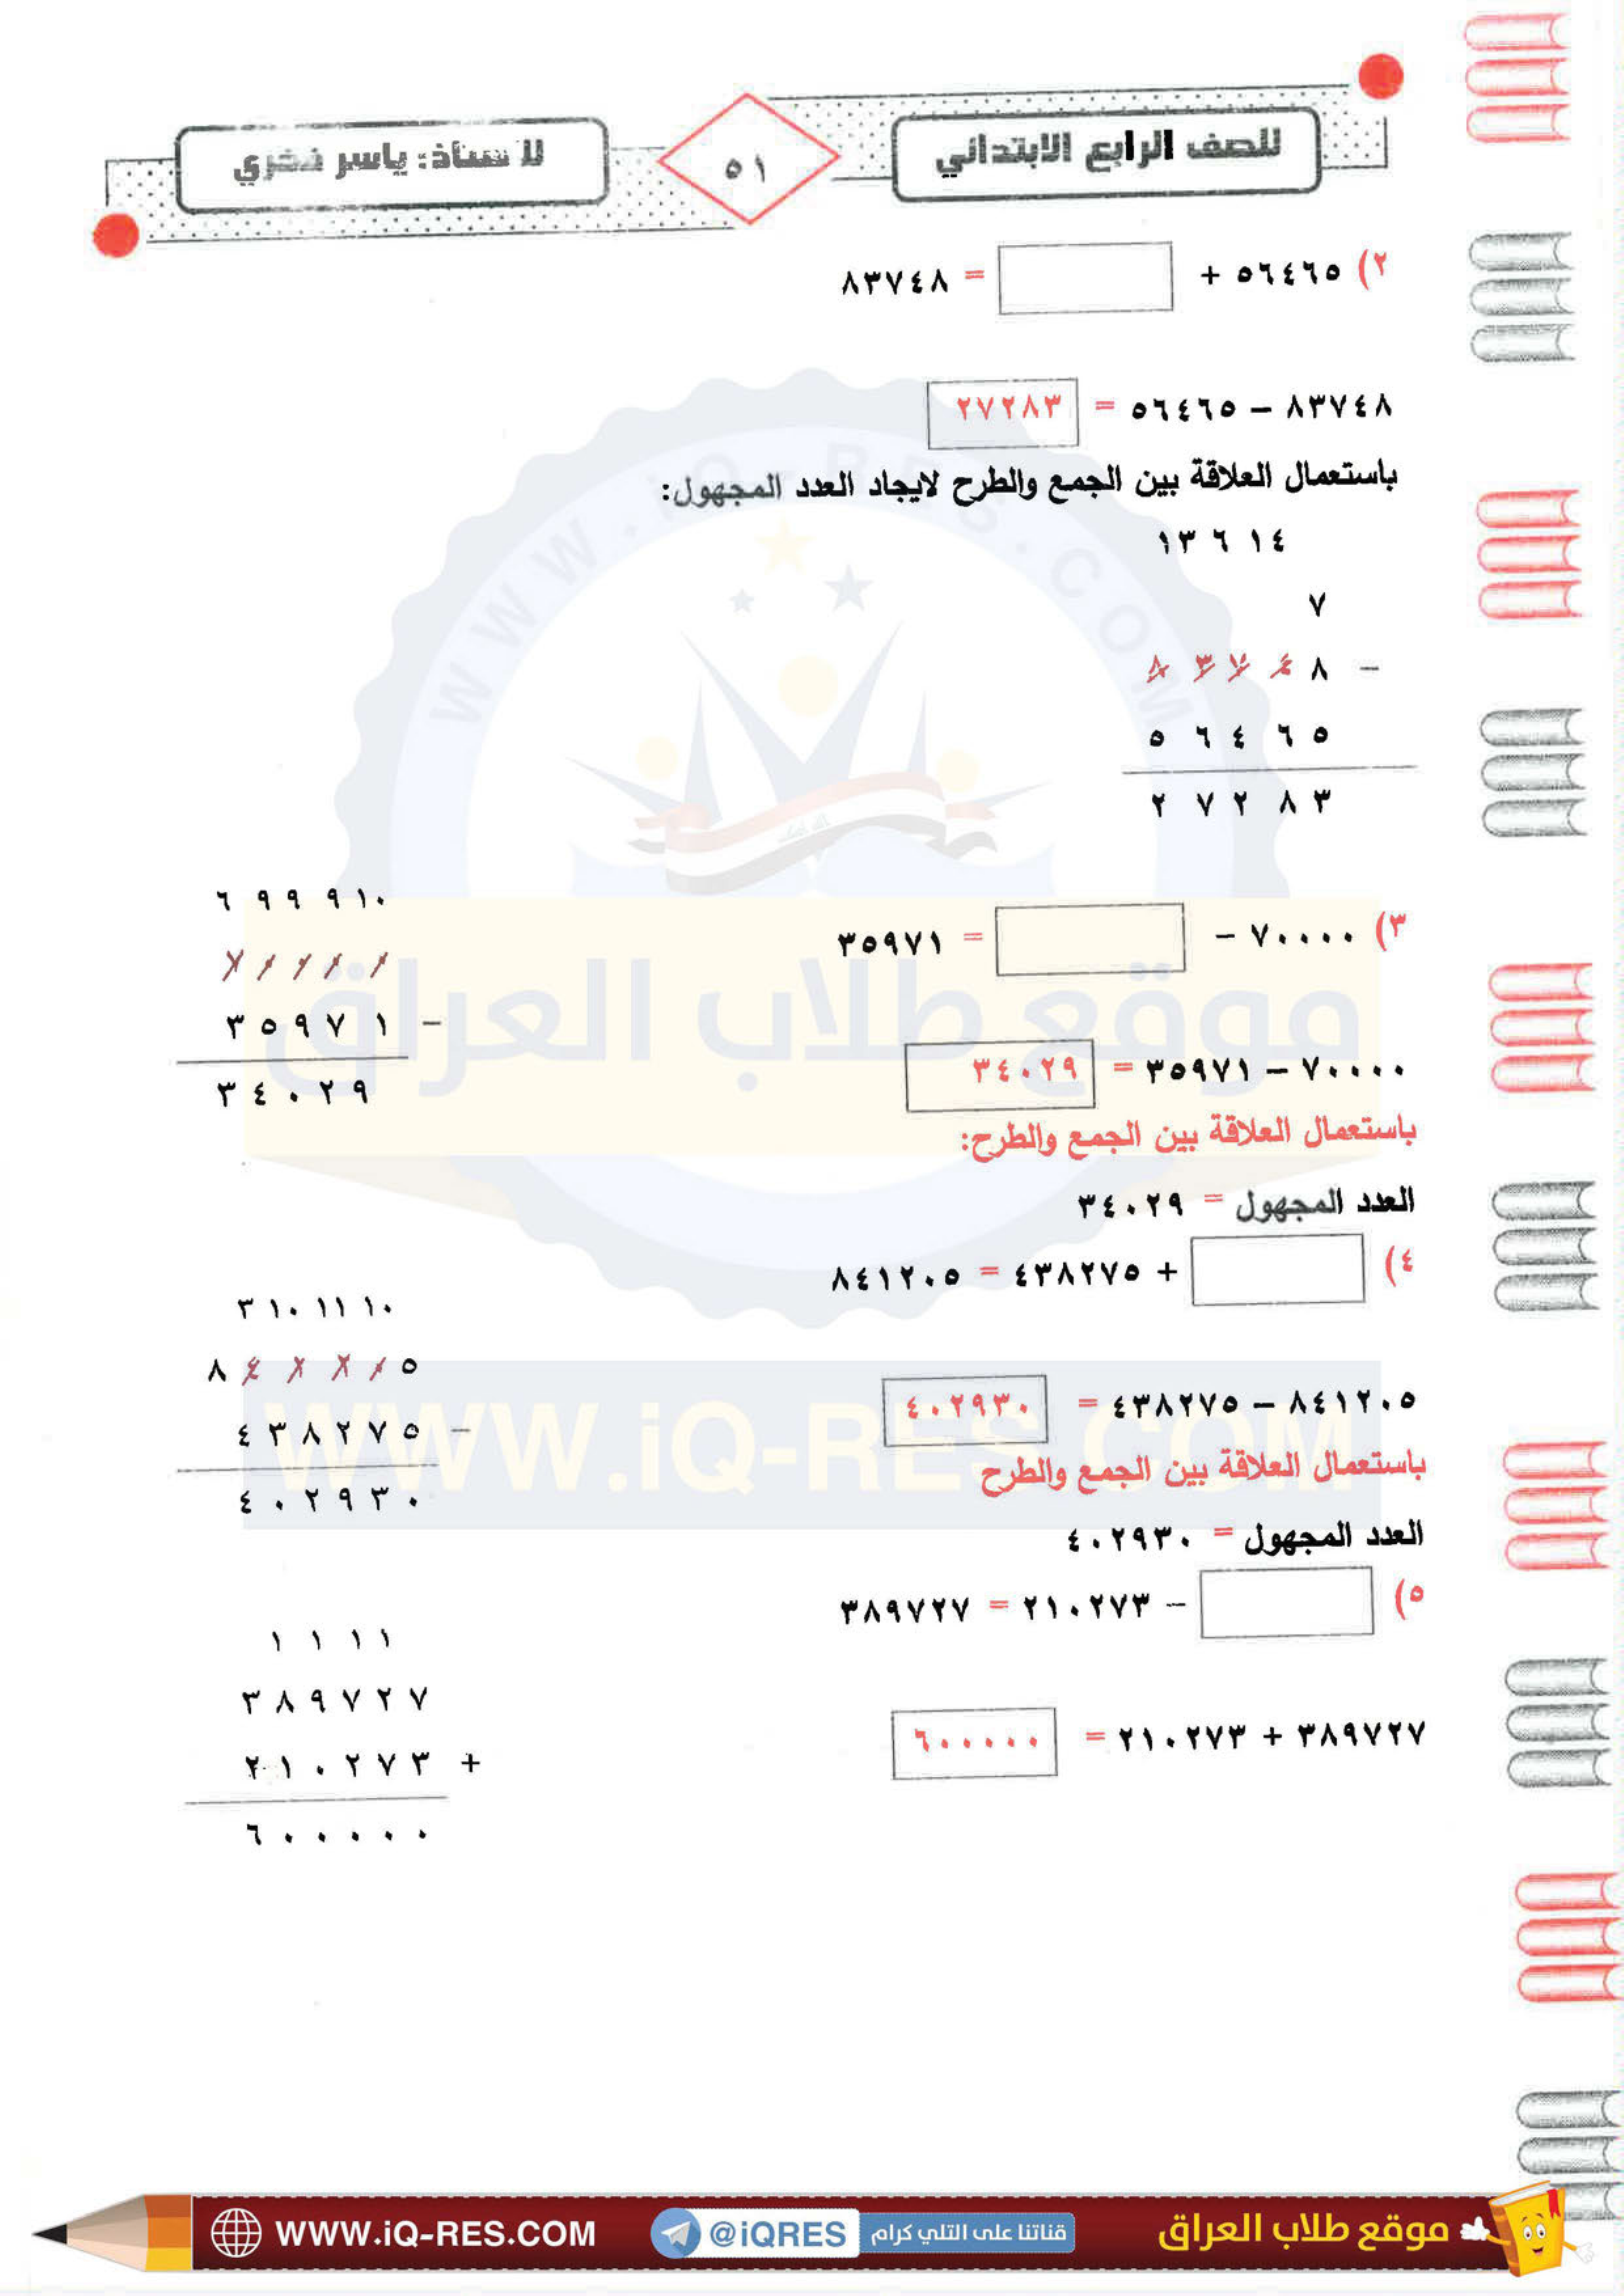 للصف الرابع الابتدائي
٥١
للأستاذ: ياسر فخري
٢) ٥٦٤٦٥ + = ٨٣٧٤٨
٨٣٧٤٨ – ٥٦٤٦٥ = ٢٧٢٨٣
باستعمال العلاقة بين الجمع والطرح لايجاد العدد المجهول:
١٣ ٦ ١٤
٧
٨ ٣ ٧ ٤ ٨ –
٥ ٦ ٤ ٦ ٥
٢ ٧ ٢ ٨ ٣
٣) ٧٠٠٠٠ – = ٣٥٩٧١
٦ ٩ ٩ ٩ ١٠
٧ ٠ ٠ ٠ ٠
٣ ٥ ٩ ٧ ١ –
٣ ٤ ٠ ٢ ٩
٧٠٠٠٠ – ٣٥٩٧١ = ٣٤٠٢٩
باستعمال العلاقة بين الجمع والطرح:
العدد المجهول = ٣٤٠٢٩
٤) + ٤٣٨٢٧٥ = ٨٤١٢٠٥
٣ ١٠ ١١ ١٠
٨ ٤ ١ ٢ ٠ ٥
٤ ٣ ٨ ٢ ٧ ٥ –
٤ ٠ ٢ ٩ ٣ ٠
٨٤١٢٠٥ – ٤٣٨٢٧٥ = ٤٠٢٩٣٠
باستعمال العلاقة بين الجمع والطرح
العدد المجهول = ٤٠٢٩٣٠
٥) – ٢١٠٢٧٣ = ٣٨٩٧٢٧
١ ١ ١ ١
٣ ٨ ٩ ٧ ٢ ٧
٢ ١ ٠ ٢ ٧ ٣ +
٦ ٠ ٠ ٠ ٠ ٠
٣٨٩٧٢٧ + ٢١٠٢٧٣ = ٦٠٠٠٠٠
WWW.iQ-RES.COM
موقع طلاب العراق
WWW.iQ-RES.COM
موقع طلاب العراق
قناتنا على التلي كرام
@iQRES
WWW.iQ-RES.COM